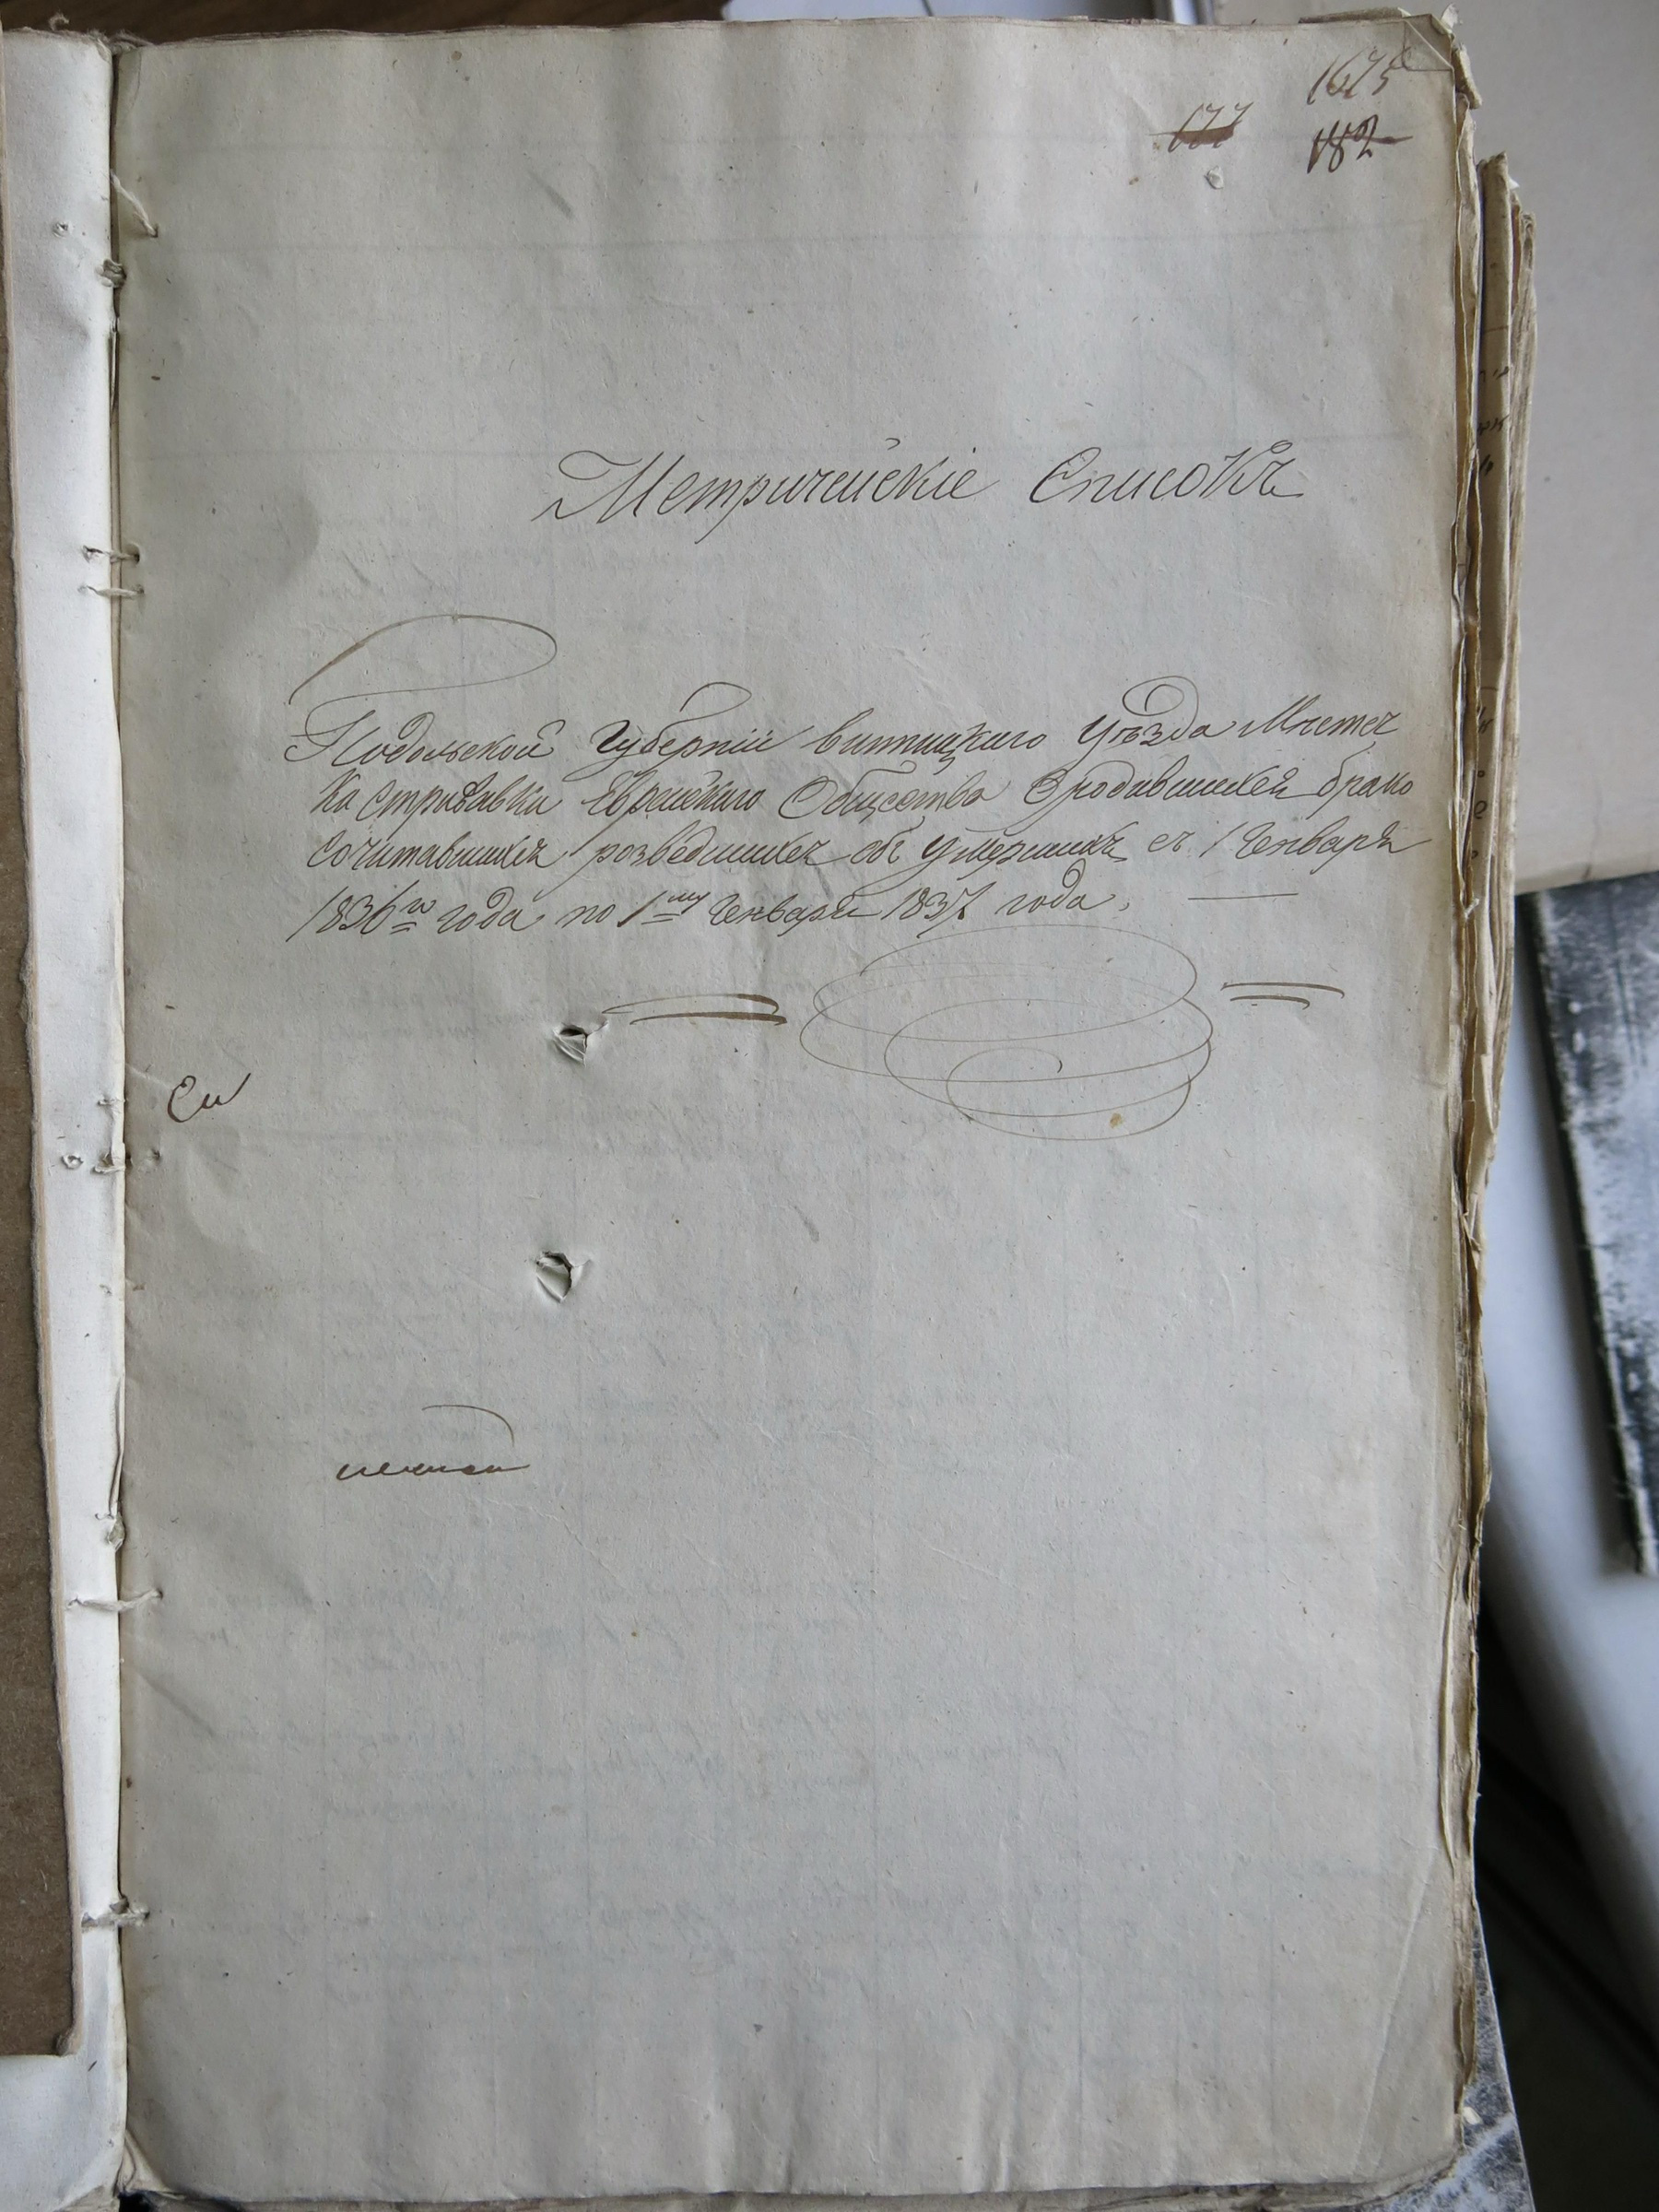 1675
177
182
Метрическіе Списокъ
Подольской Губерніи винницкаго Уѣзда Мѣстеч
ка Стрижавки Еврейскаго Общества Ородавшихся брако
сочитавшихся розведшихся объ Умершихъ съ 1 Генваря
1836го года по 1му Генваря 1837 года.